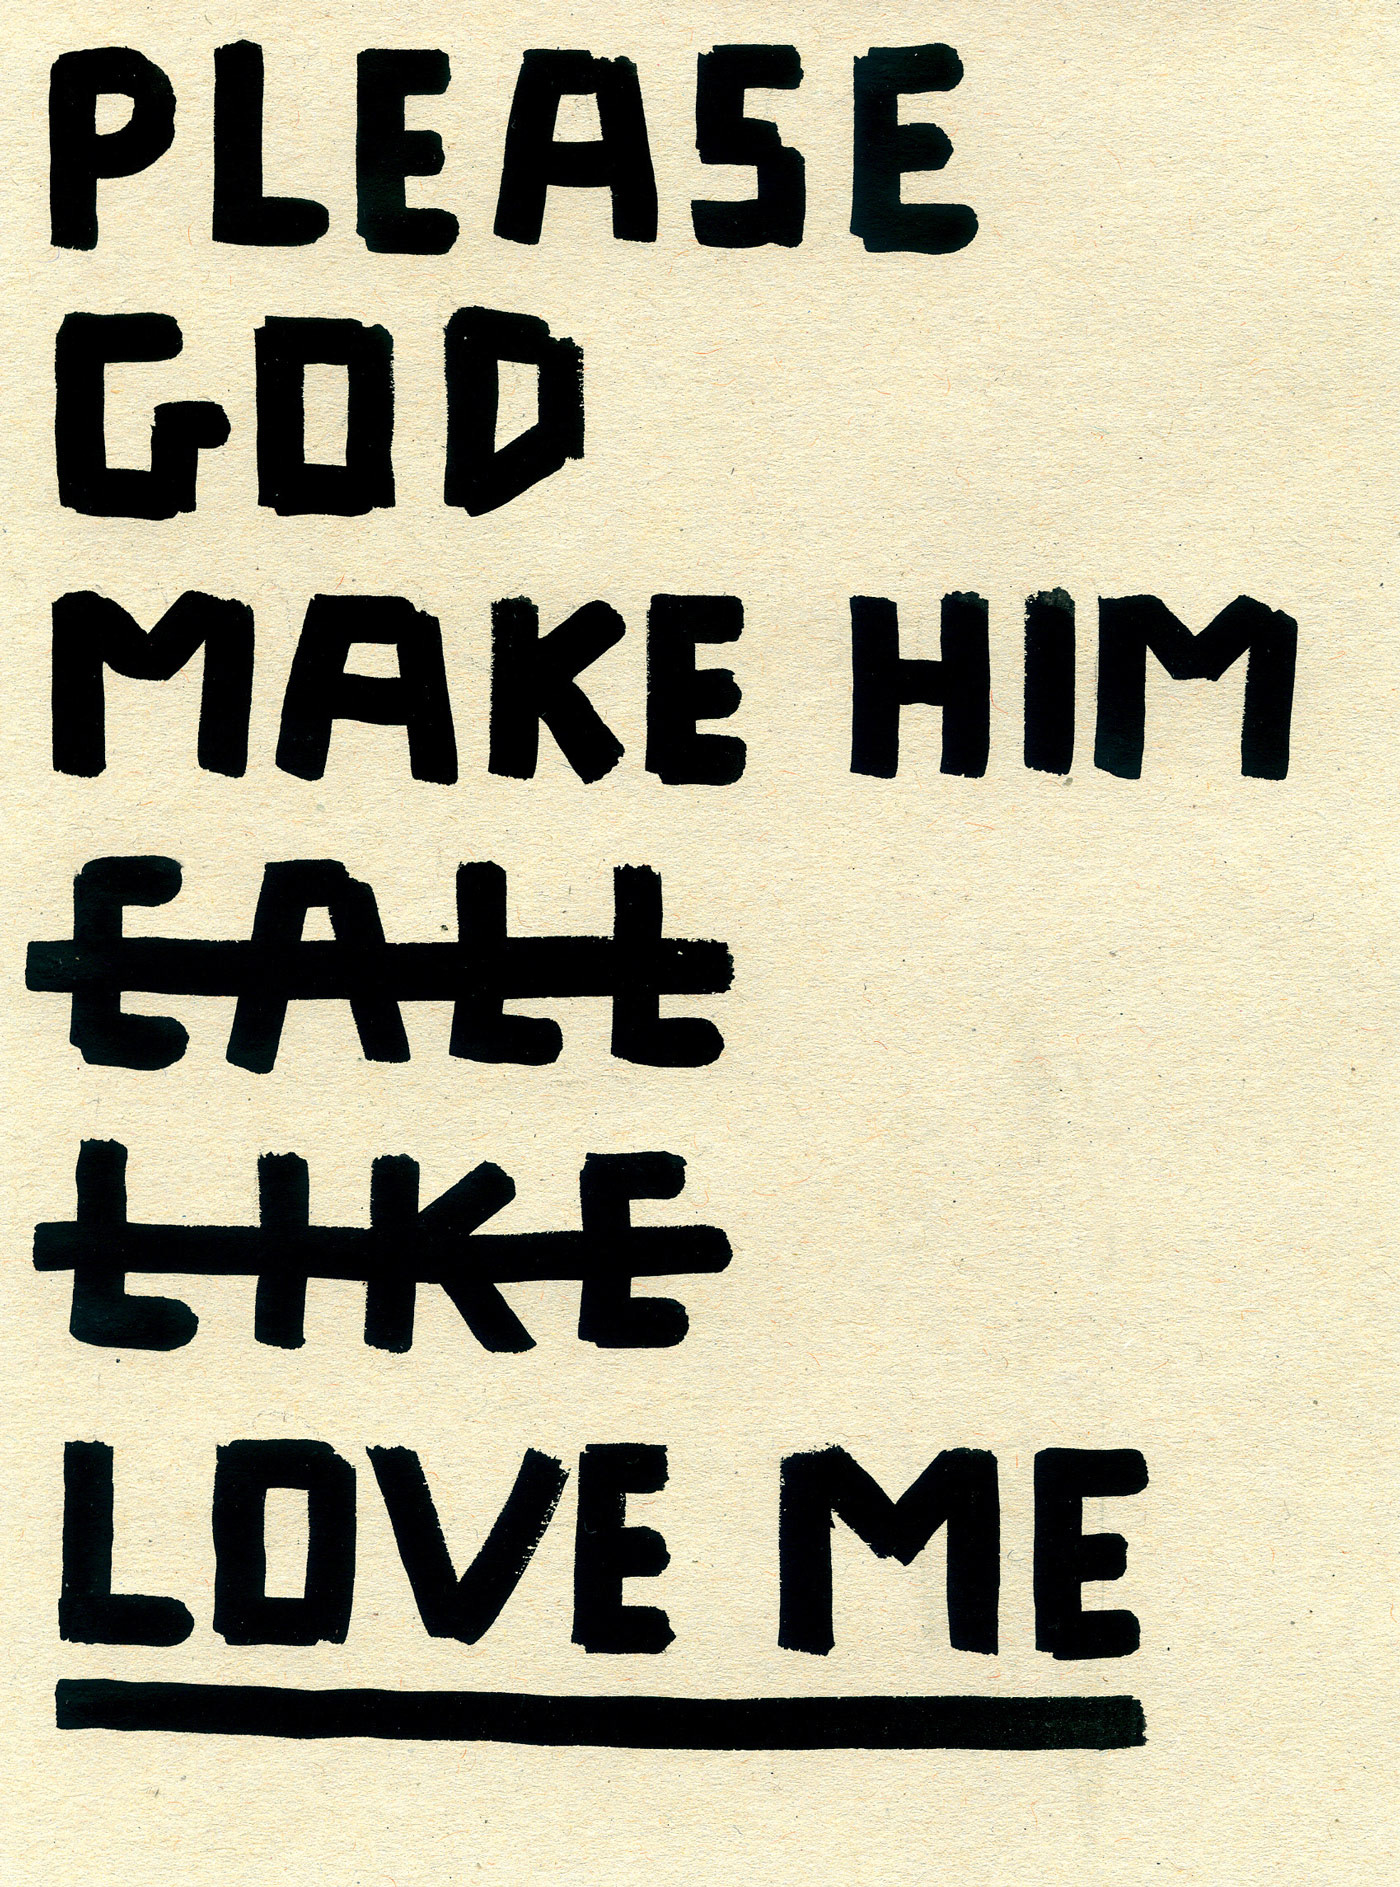 PLEASE
GOD
MAKE HIM
CALL
LIKE
LOVE ME